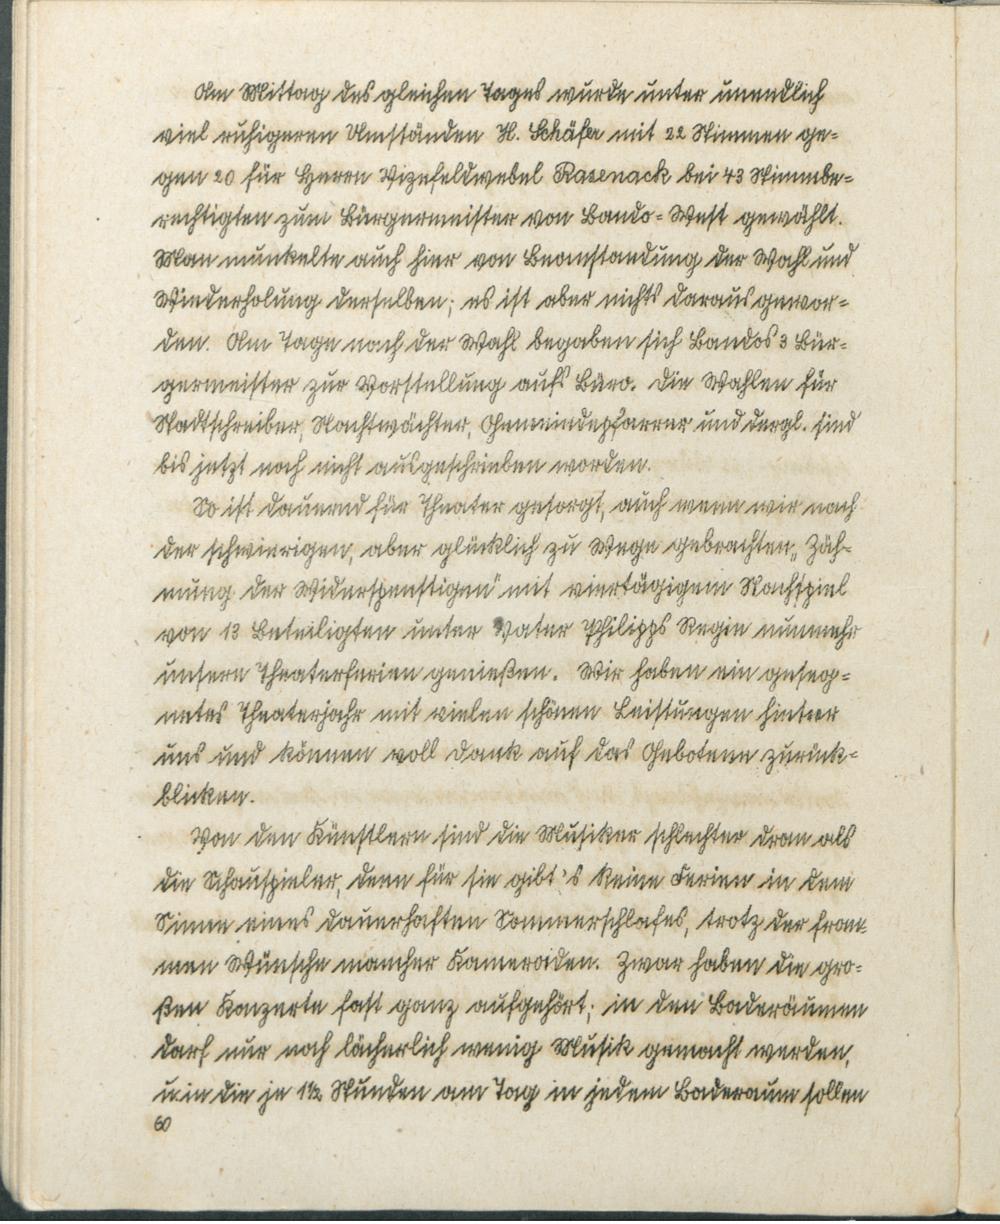 Am Mittag des gleichen Tages wurde unter unendlich
viel ruhigeren Umständen H. Schäfer mit 22 Stimmen ge=
gen 20 für Herrn Vizefeldwebel Rasenack bei 43 Stimmbe=
rechtigten zum Bürgermeister von Bando=West gewählt.
Man munkelte auch hier von Beanstandung der Wahl und
Wiederholung derselben; es ist aber nichts daraus gewor=
den. Am Tage nach der Wahl begaben sich Bandos 3 Bür=
germeister zur Vorstellung aufs Büro. Die Wahlen für
Stadtschreiber, Nachtwächter, Gemeindepfarrer und dergl. sind
bis jetzt noch nicht ausgeschrieben worden.
So ist dauernd für Theater gesorgt, auch wenn wir nach
der schwierigen, aber glücklich zu Wege gebrachten „Zäh=
mung der Widerspenstigen" mit viertägigem Nachspiel
von 13 Beteiligten unter Vater Philipps Regie nunmehr
unsere Theaterferien genießen. Wir haben ein geseg=
netes Theaterjahr mit vielen schönen Leistungen hinter
uns und können voll Dank auf das Gebotene zurück=
blicken.
Von den Künstlern sind die Musiker schlechter dran als
die Schauspieler, denn für sie gibt's keine Ferien in dem
Sinne eines dauerhaften Sommerschlafes, trotz der from=
men Wünsche mancher Kameraden. Zwar haben die gro=
ßen Konzerte fast ganz aufgehört; in den Baderäumen
darf nur noch lächerlich wenig Musik gemacht werden,
u. in die je 1½ Stunden am Tag in jedem Baderaum sollen
60